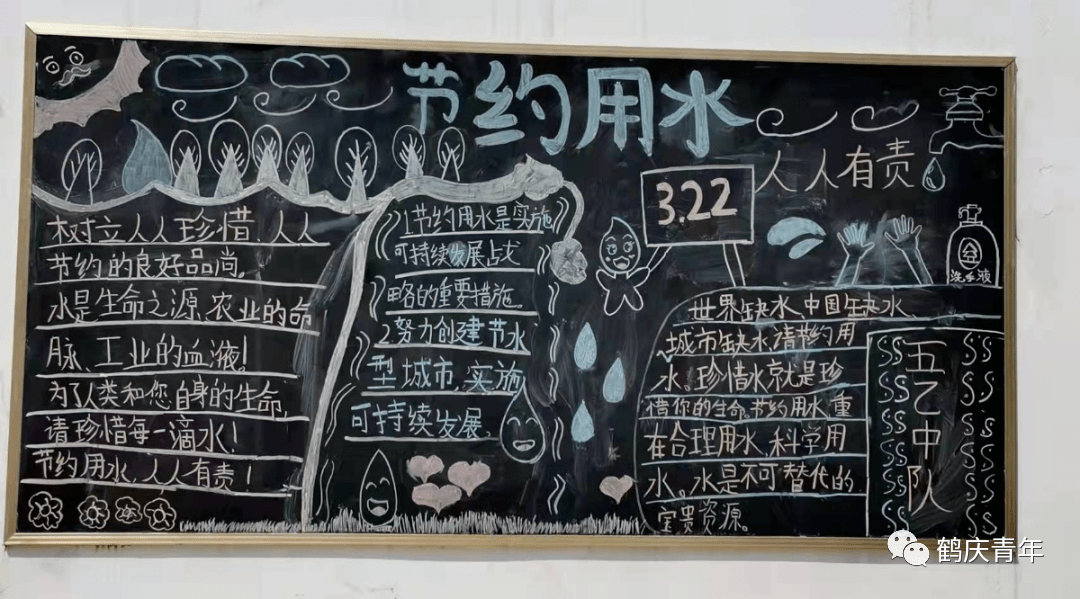 节约用水
人人有责
3.22
树立人人珍惜、人人
节约的良好品尚。
水是生命之源、农业的命
脉、工业的血液！
为了人类和您自身的生命,
请珍惜每一滴水！
节约用水,人人有责！
1节约用水是实施
可持续发展占战
略的重要措施.
2努力创建节水
型城市,实施
可持续发展.
洗手液
世界缺水、中国缺水、
城市缺水,请节约用
水。珍惜水就是珍
惜你的生命。节约用水,重
在合理用水,科学用
水。水是不可替代的
宝贵资源。
五乙中队
鹤庆青年